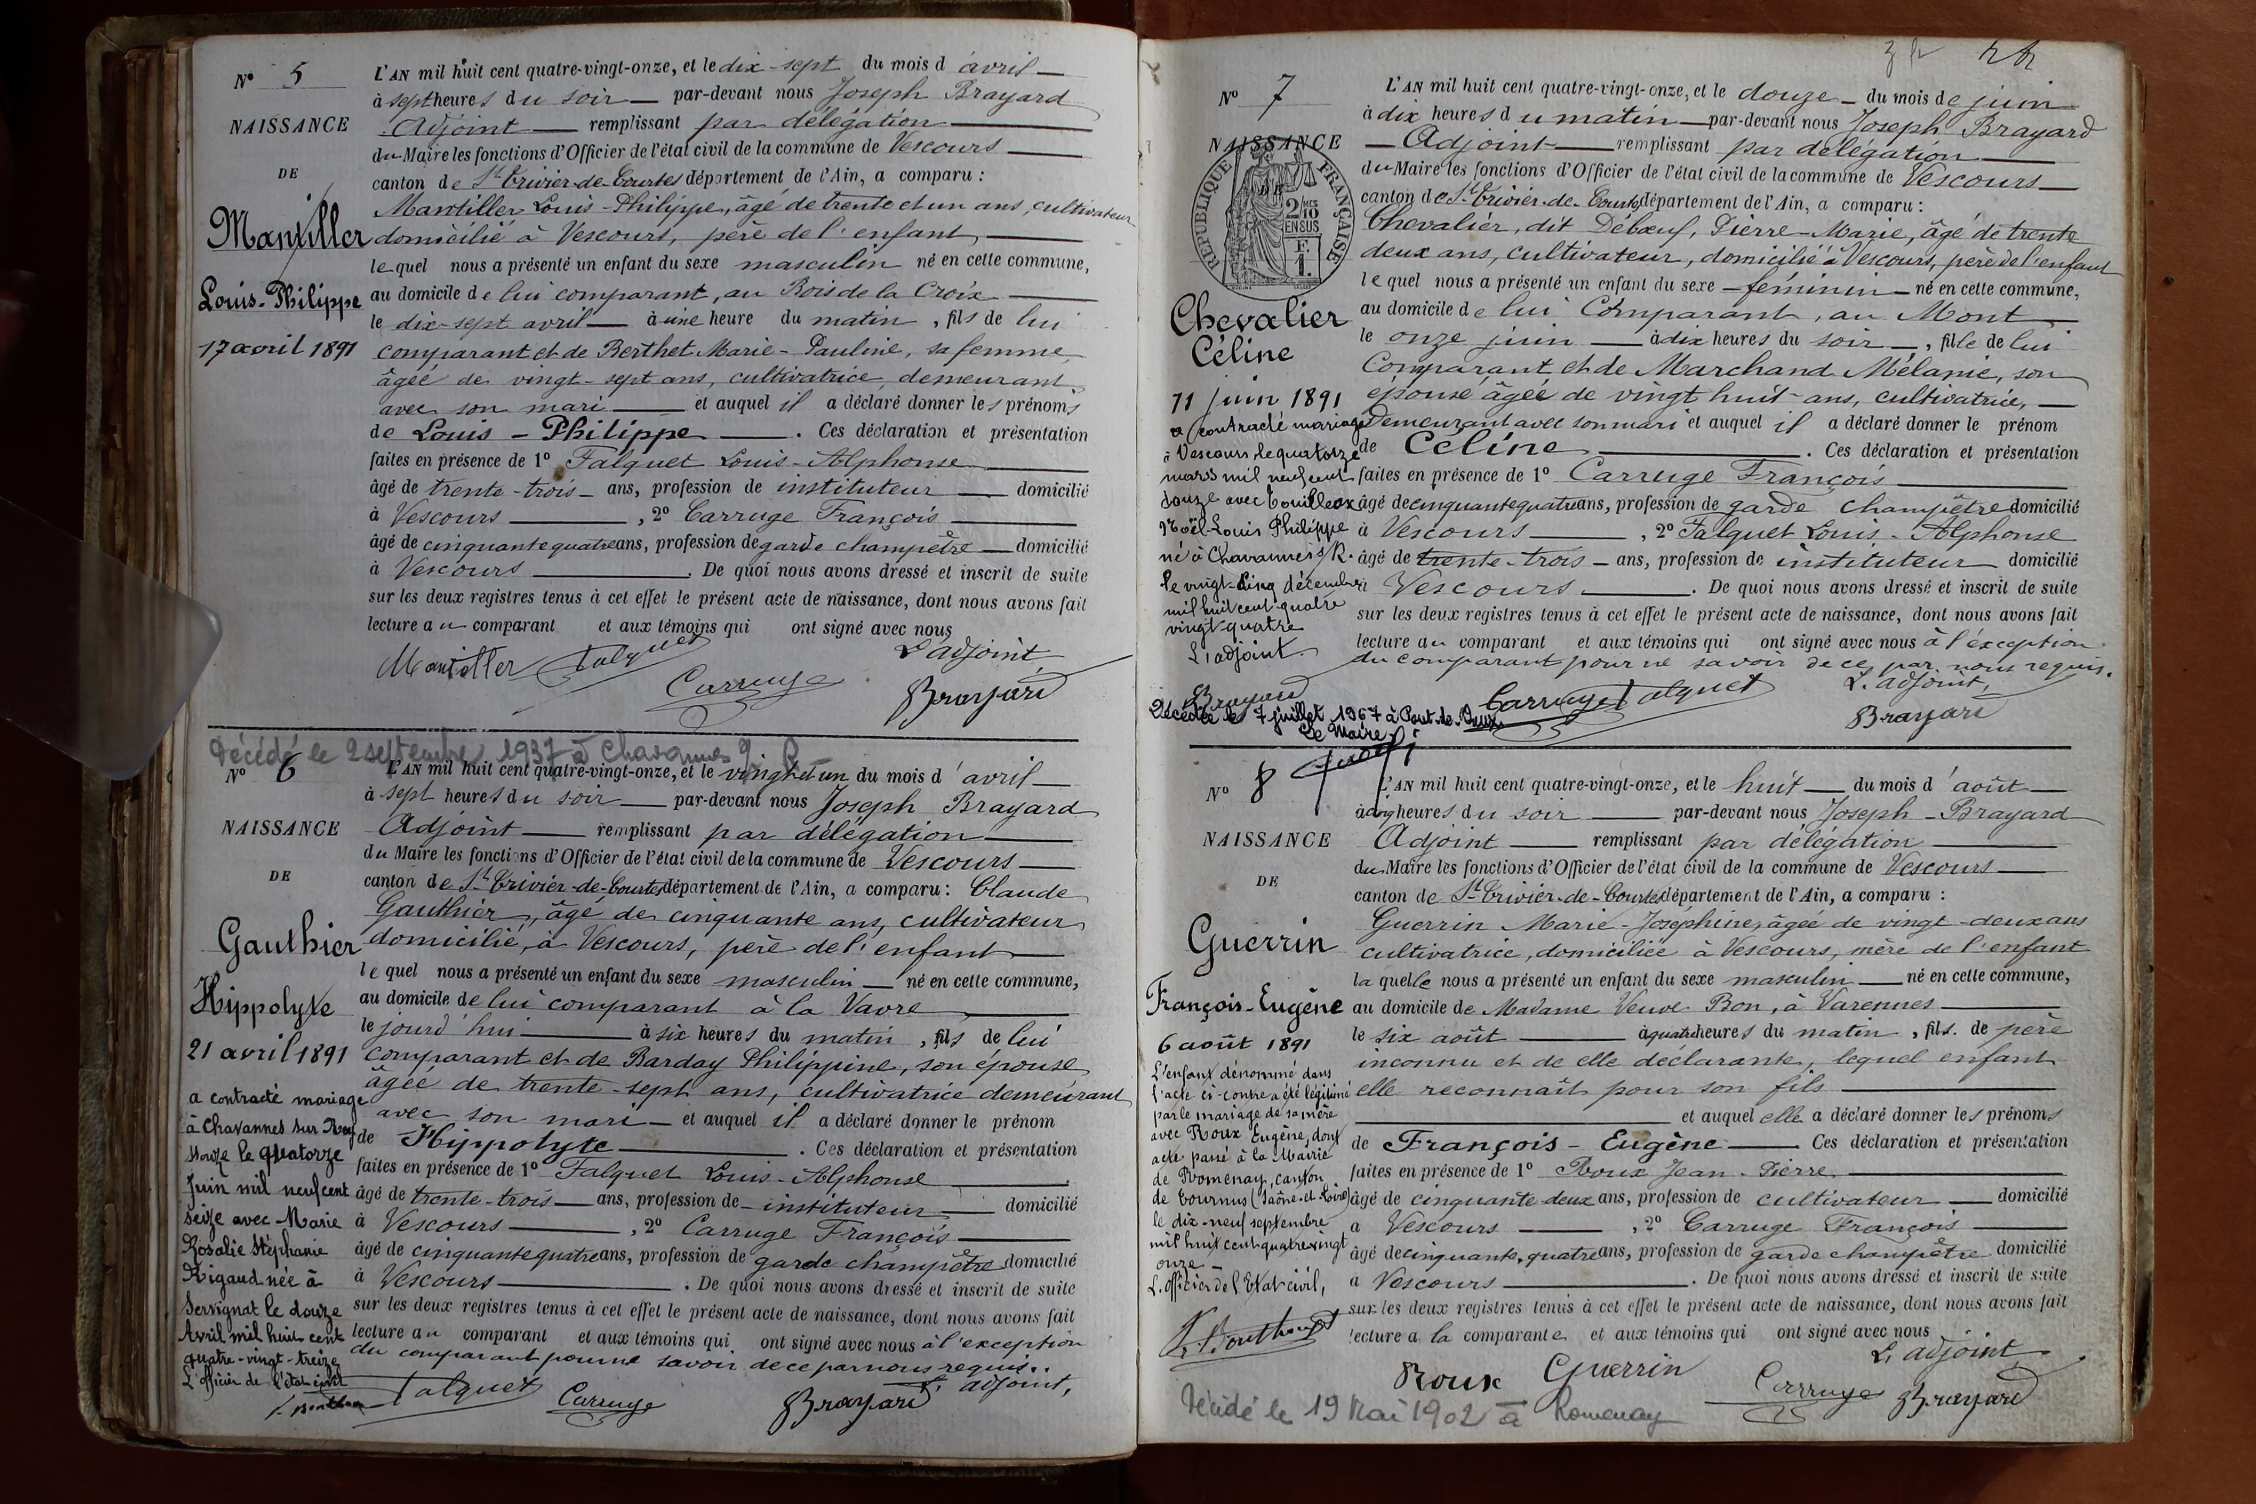 N° 5
NAISSANCE
DE
Mantiller
Louis-Philippe
17 avril 1891
L'AN mil huit cent quatre-vingt-onze, et le dix-sept du mois d'avril
à sept heures du soir par-devant nous Joseph Brayard
Adjoint remplissant par délégation
du Maire les fonctions d'Officier de l'état civil de la commune de Vescours
canton de St Trivier-de-Courtes département de l'Ain, a comparu :
Mantiller Louis-Philippe, âgé de trente et un ans, cultivateur
domicilié à Vescours, père de l'enfant,
lequel nous a présenté un enfant du sexe masculin né en cette commune,
au domicile de lui comparant, au Bois de la Croix
le dix-sept avril à une heure du matin, fils de lui
comparant et de Berthet Marie-Pauline, sa femme
âgée de vingt-sept ans, cultivatrice, demeurant
avec son mari et auquel il a déclaré donner les prénoms
de Louis-Philippe . Ces déclaration et présentation
faites en présence de 1° Falquet Louis-Alphonse
âgé de trente-trois ans, profession de instituteur domicilié
à Vescours , 2° Carruge François
âgé de cinquante quatre ans, profession de garde champêtre domicilié
à Vescours . De quoi nous avons dressé et inscrit de suite
sur les deux registres tenus à cet effet le présent acte de naissance, dont nous avons fait
lecture au comparant et aux témoins qui ont signé avec nous
L'adjoint
Mantiller Falquet Carruge Brayard
Décédé le 2 septembre 1937 à Chavannes s/ R
N° 6
NAISSANCE
DE
Gauthier
Hippolyte
21 avril 1891
a contracté mariage
à Chavannes sur Rey
souze le quatorze
Juin mil neuf cent
seize avec Marie
Rosalie Stéphanie
Rigaud née à
Servignat le douze
Avril mil huit cent
quatre-vingt-treize
L'officier de l'état civil
L'AN mil huit cent quatre-vingt-onze, et le vingt et un du mois d'avril
à sept heures du soir par-devant nous Joseph Brayard
Adjoint remplissant par délégation
du Maire les fonctions d'Officier de l'état civil de la commune de Vescours
canton de St Trivier-de-Courtes département de l'Ain, a comparu : Claude
Gauthier, âgé de cinquante ans, cultivateur
domicilié, à Vescours, père de l'enfant
lequel nous a présenté un enfant du sexe masculin né en cette commune,
au domicile de lui comparant à la Vavre
le jourd'hui à six heures du matin, fils de lui
comparant et de Barday Philippine, son épouse
âgée de trente-sept ans, cultivatrice demeurant
avec son mari et auquel il a déclaré donner le prénom
de Hippolyte . Ces déclaration et présentation
faites en présence de 1° Falquet Louis-Alphonse
âgé de trente-trois ans, profession de instituteur domicilié
à Vescours , 2° Carruge François
âgé de cinquante quatre ans, profession de garde champêtre domicilié
à Vescours . De quoi nous avons dressé et inscrit de suite
sur les deux registres tenus à cet effet le présent acte de naissance, dont nous avons fait
lecture au comparant et aux témoins qui ont signé avec nous à l'exception
du comparant pour ne savoir de ce par nous requis.
L'adjoint,
Falquet Carruge Brayard
N° 7
NAISSANCE
DE
RÉPUBLIQUE FRANÇAISE
2/10
EN SUS
F.
1.
Chevalier
Céline
11 juin 1891
a contracté mariage
à Vescours le quatorze
mars mil neuf cent
douze avec Couilleux
Noël-Louis Philippe
né à Chavannes s/R.
le vingt-cinq décembre
mil huit cent quatre
vingt-quatre
L'adjoint
Brayard
Décédée le 7 juillet 1967 à Pont-de-Vaux
Le Maire,
L'AN mil huit cent quatre-vingt-onze, et le douze du mois de juin
à dix heures du matin par-devant nous Joseph Brayard
Adjoint remplissant par délégation
du Maire les fonctions d'Officier de l'état civil de la commune de Vescours
canton de St Trivier-de-Courtes département de l'Ain, a comparu :
Chevalier, dit Débœuf, Pierre-Marie, âgé de trente
deux ans, cultivateur, domicilié à Vescours, père de l'enfant
lequel nous a présenté un enfant du sexe féminin né en cette commune,
au domicile de lui Comparant, au Mont
le onze juin à dix heures du soir, fille de lui
Comparant et de Marchand Mélanie, son
épouse âgée de vingt huit ans, cultivatrice,
Demeurant avec son mari et auquel il a déclaré donner le prénom
de Céline . Ces déclaration et présentation
faites en présence de 1° Carruge François
âgé de cinquante quatre ans, profession de garde champêtre domicilié
à Vescours , 2° Falquet Louis-Alphonse
âgé de trente-trois ans, profession de instituteur domicilié
à Vescours . De quoi nous avons dressé et inscrit de suite
sur les deux registres tenus à cet effet le présent acte de naissance, dont nous avons fait
lecture au comparant et aux témoins qui ont signé avec nous à l'exception
du comparant pour ne savoir de ce par nous requis.
L'adjoint,
Carruge Falquet Brayard
N° 8
NAISSANCE
DE
Guerrin
François-Eugène
6 août 1891
L'enfant dénommé dans
l'acte ci-contre a été légitimé
par le mariage de sa mère
avec Roux Eugène, dont
acte passé à la Mairie
de Romenay, canton
de Tournus (Saône-et-Loire)
le dix-neuf septembre
mil huit cent quatre vingt
onze
L'officier de l'Etat civil,
L'AN mil huit cent quatre-vingt-onze, et le huit du mois d'août
à cinq heures du soir par-devant nous Joseph Brayard
Adjoint remplissant par délégation
du Maire les fonctions d'Officier de l'état civil de la commune de Vescours
canton de St Trivier-de-Courtes département de l'Ain, a comparu :
Guerrin Marie-Joséphine, âgée de vingt-deux ans
cultivatrice, domiciliée à Vescours, mère de l'enfant
laquelle nous a présenté un enfant du sexe masculin né en cette commune,
au domicile de Madame Veuve Bon, à Varennes
le six août à quatre heures du matin, fils de père
inconnu et de elle déclarante, lequel enfant
elle reconnaît pour son fils
et auquel elle a déclaré donner les prénoms
de François-Eugène Ces déclaration et présentation
faites en présence de 1° Roux Jean-Pierre
âgé de cinquante deux ans, profession de cultivateur domicilié
à Vescours , 2° Carruge François
âgé de cinquante quatre ans, profession de garde champêtre domicilié
à Vescours . De quoi nous avons dressé et inscrit de suite
sur les deux registres tenus à cet effet le présent acte de naissance, dont nous avons fait
lecture a la comparante et aux témoins qui ont signé avec nous
L'adjoint
Roux Guerrin Carruge Brayard
Décédé le 19 Mai 1902 à Romenay